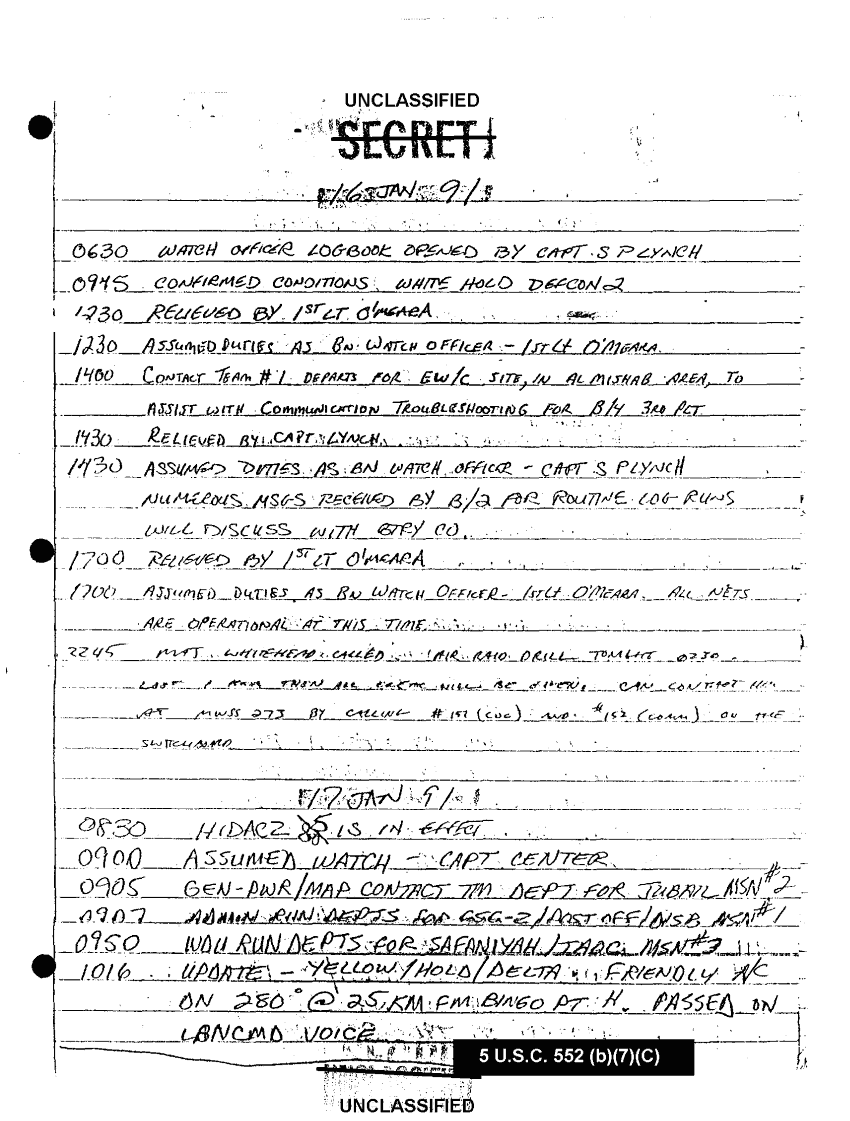 UNCLASSIFIED
SECRET
16 JAN 91
0630 WATCH OFFICER LOGBOOK OPENED BY CAPT S P LYNCH
0945 CONFIRMED CONDITIONS: WHITE HOLD DEFCON 2
1230 RELIEVED BY 1ST LT O'MEARA
1230 ASSUMED DUTIES AS BN WATCH OFFICER - 1ST Lt O'MEARA
1400 CONTACT TEAM #1 DEPARTS FOR EW/C SITE, IN AL MISHAB AREA, TO
ASSIST WITH COMMUNICATION TROUBLESHOOTING FOR B/4 3RD PLT
1430 RELIEVED BY CAPT LYNCH
1430 ASSUMED DUTIES AS BN WATCH OFFICER - CAPT S P LYNCH
NUMEROUS MSGS RECEIVED BY B/2 FOR ROUTINE LOG RUNS
WILL DISCUSS WITH BTRY CO.
1700 RELIEVED BY 1ST LT O'MEARA
1700 ASSUMED DUTIES AS BN WATCH OFFICER - 1ST Lt O'MEARA. ALL NETS
ARE OPERATIONAL AT THIS TIME
2245 WHITEHEAD CALLED AIR RAID DRILL TONIGHT 0230.
THEN ALL WILL BE GIVEN. CAN CONTACT HIM
AT MWSS 273 BY CALLING #151 (COC) AND #152 (COMM) ON THE
SWITCHBOARD
17 JAN 91
0830 HIDACZ IS IN EFFECT.
0900 ASSUMED WATCH - CAPT CENTER
0905 GEN-PWR/MAP CONTACT TM DEPT FOR JUBAIL MSN #2
0907 ADMIN RUN DEPTS FOR GSG-2/POST OFF/NSB MSN #1
0950 RUN DEPTS FOR SAFANIYAH/ MSN #3
1016 UPDATE - YELLOW/HOLD/DELTA FRIENDLY A/C
ON 280° @ 25 KM FM BINGO PT H. PASSED ON
LBNCMD VOICE
5 U.S.C. 552 (b)(7)(C)
UNCLASSIFIED